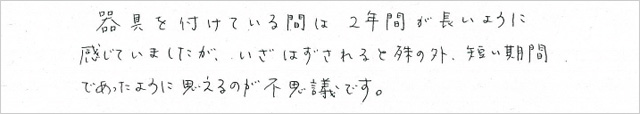 器具を付けている間は2年間が長いように
感じていましたが、いざはずされると殊の外、短い期間
であったように思えるのが不思議です。